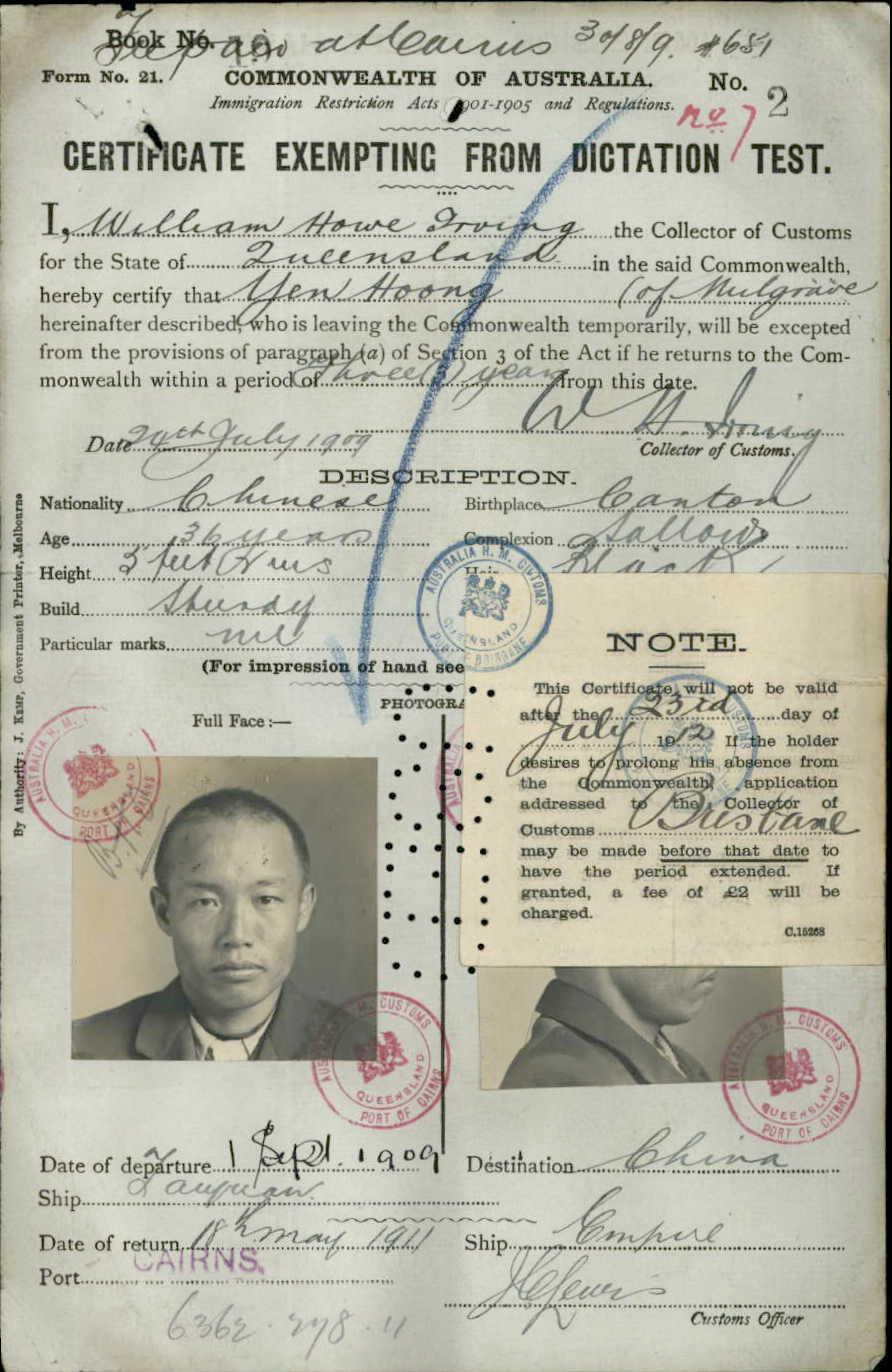 Book No.
at Cairns 30/8/9.
Form No. 21. COMMONWEALTH OF AUSTRALIA. No. 2
Immigration Restriction Acts 1901-1905 and Regulations. No 7
CERTIFICATE EXEMPTING FROM DICTATION TEST.
I, William Howe Irving the Collector of Customs
for the State of Queensland in the said Commonwealth,
hereby certify that Yen Hoong (of Mulgrave
hereinafter described, who is leaving the Commonwealth temporarily, will be excepted
from the provisions of paragraph (a) of Section 3 of the Act if he returns to the Com-
monwealth within a period of Three (3) years from this date.
W H. Irving
Date 24th July 1909 Collector of Customs.
DESCRIPTION.
Nationality Chinese Birthplace Canton
Age 36 years Complexion Sallow
Height 5 feet Hair Black
Build Sturdy
Particular marks nil
(For impression of hand see
PHOTOGRA
Full Face:—
NOTE.
This Certificate will not be valid
after the 23rd day of
July 1912 If the holder
desires to prolong his absence from
the Commonwealth, application
addressed to the Collector of
Customs Brisbane
may be made before that date to
have the period extended. If
granted, a fee of £2 will be
charged.
C.15268
AUSTRALIA H. M. CUSTOMS
QUEENSLAND
PORT OF BRISBANE
AUSTRALIA H. M. C
QUEENSLAND
PORT OF CAIRNS
M. CUSTOMS
QUEENSLAND
PORT OF CAIRNS
AUSTRALIA H. M. CUSTOMS
QUEENSLAND
PORT OF CAIRNS
Date of departure 1 Sept. 1909 Destination China
Ship Taiyuan
Date of return 18th May 1911 Ship Empire
Port CAIRNS.
Lewis
Customs Officer
By Authority: J. KEMP, Government Printer, Melbourne